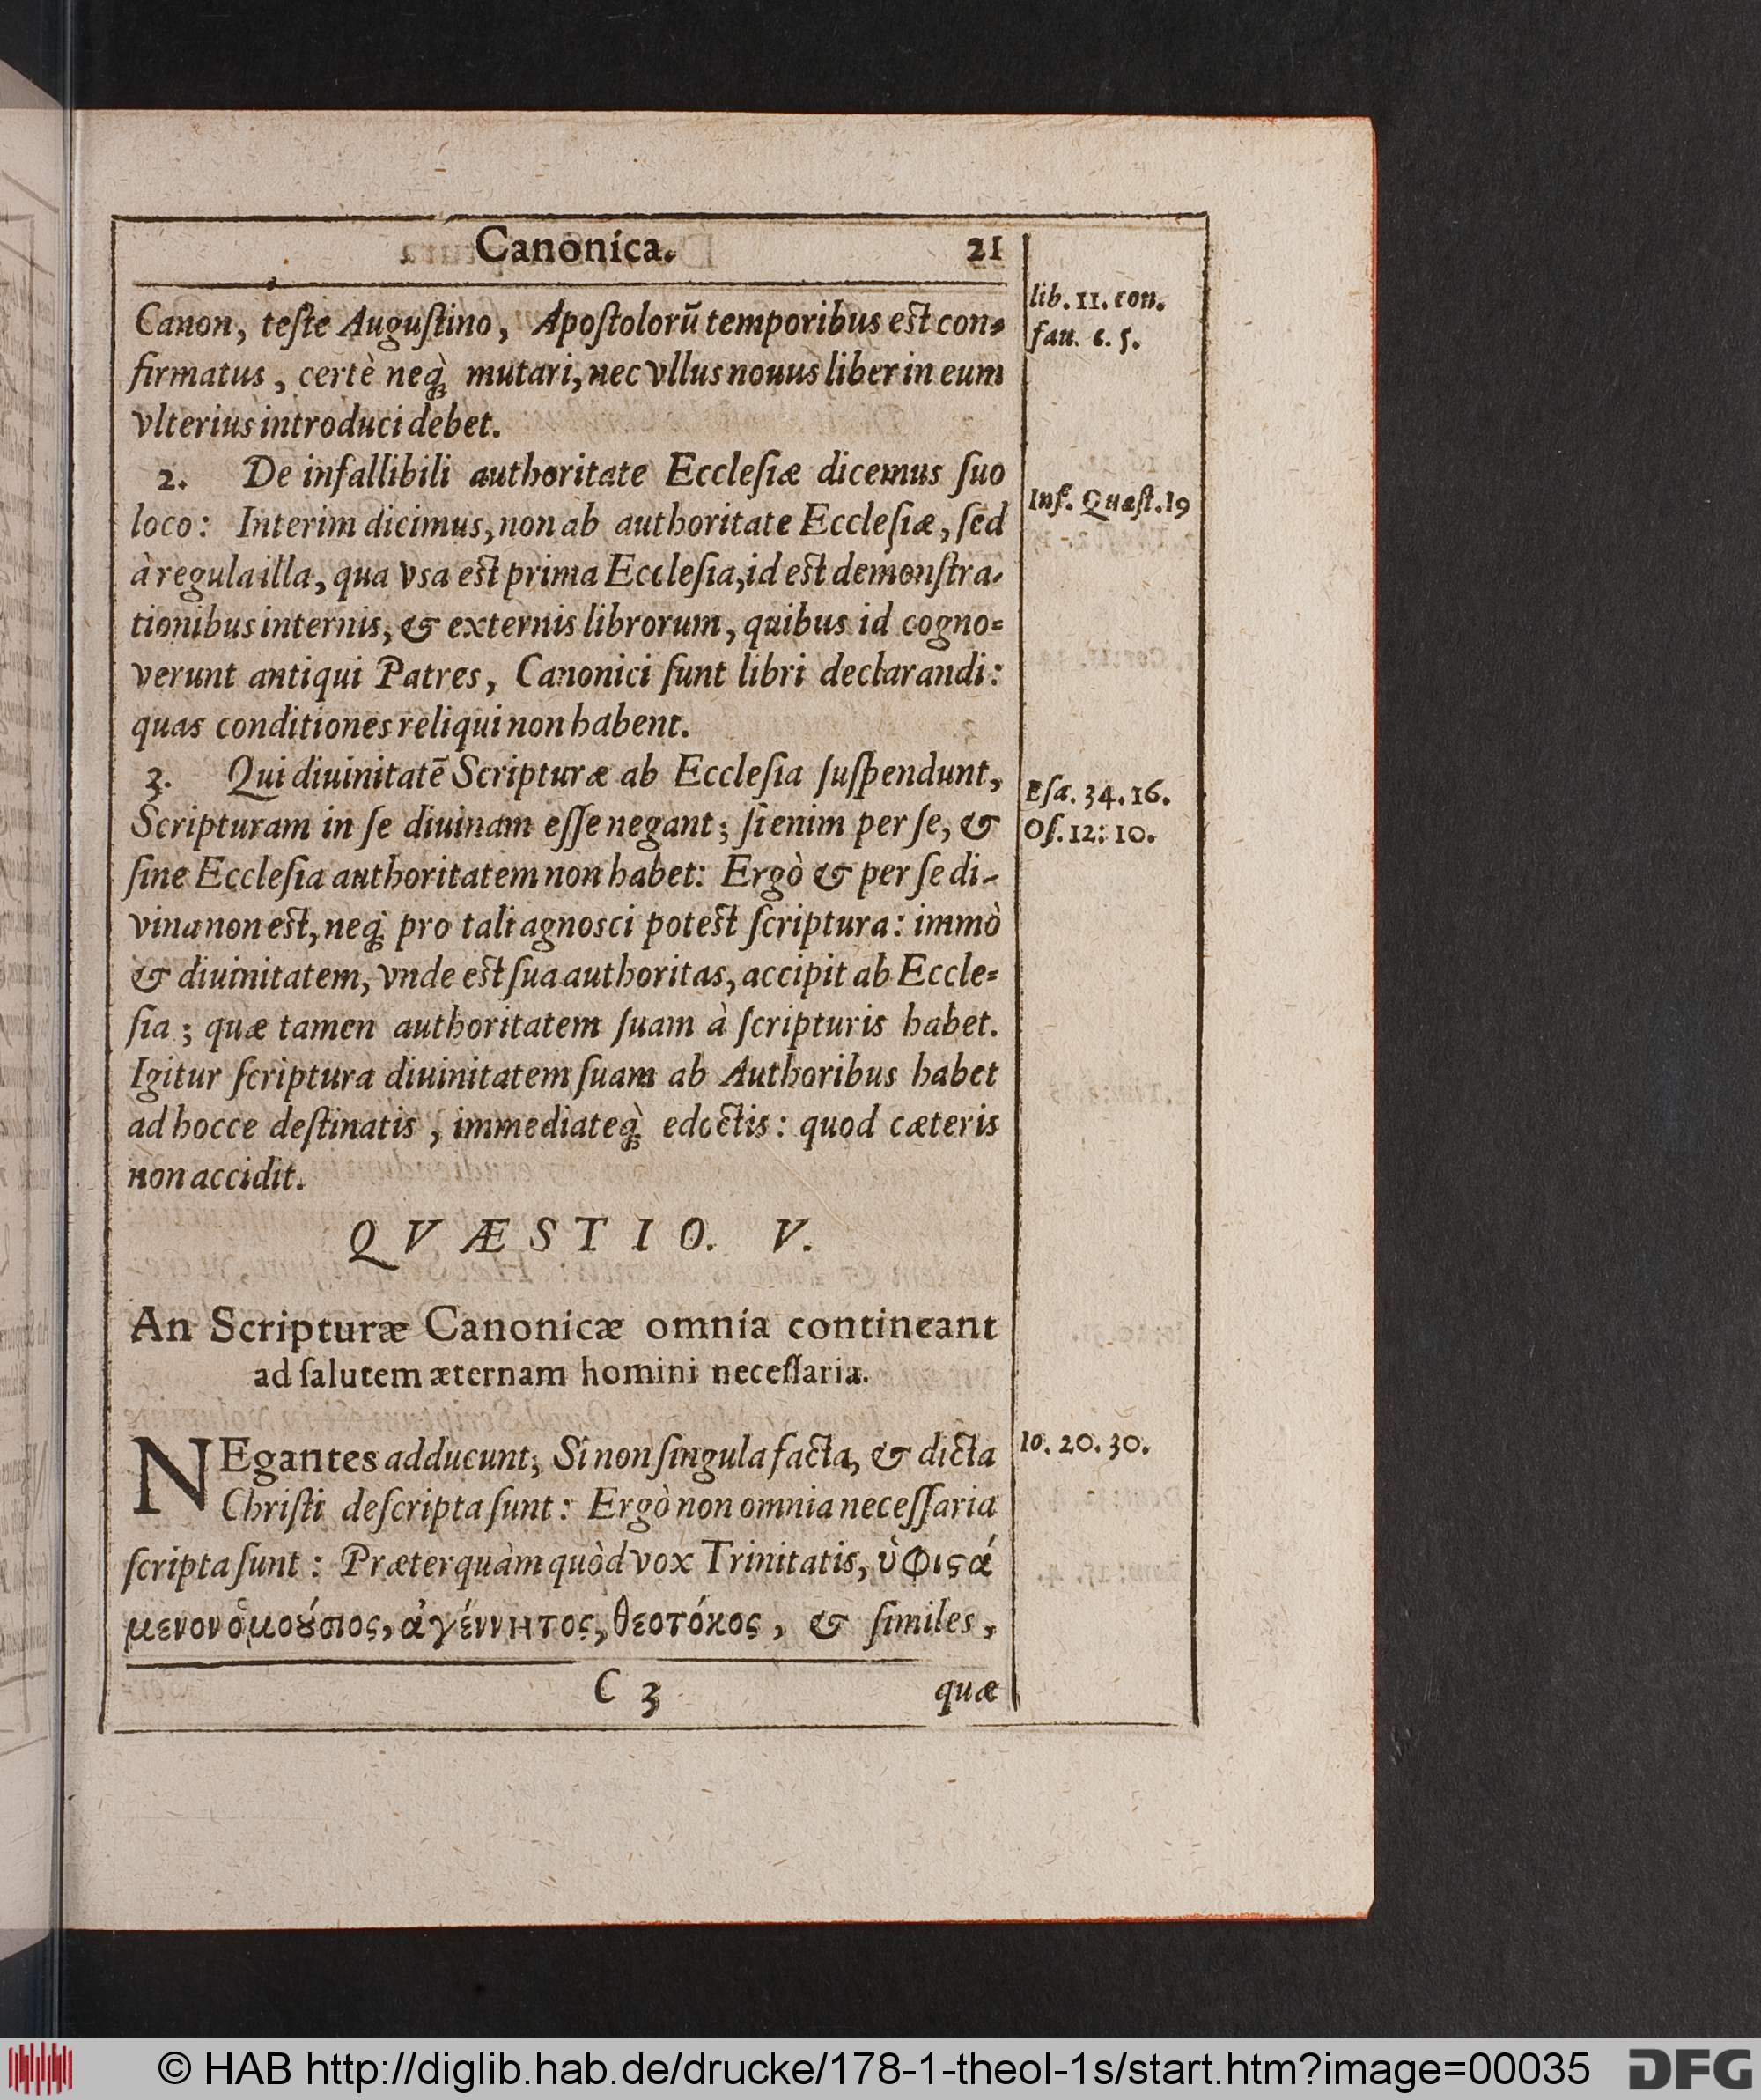 Canonica. 21
Canon, teſte Auguſtino, Apoſtolorũ temporibus eſt con-
firmatus, certè neq́; mutari, nec vllus nouus liber in eum
vlterius introduci debet.
lib. 11. con.
fau. c. 5.
2. De infallibili authoritate Eccleſiæ dicemus ſuo
loco: Interim dicimus, non ab authoritate Eccleſiæ, ſed
à regula illa, qua vsa eſt prima Eccleſia, id eſt demonſtra-
tionibus internis, & externis librorum, quibus id cogno-
verunt antiqui Patres, Canonici ſunt libri declarandi:
quas conditiones reliqui non habent.
Inf. Quæſt. 19
3. Qui diuinitatē Scripturæ ab Eccleſia ſuſpendunt,
Scripturam in ſe diuinam eſſe negant; ſi enim per ſe, &
ſine Eccleſia authoritatem non habet: Ergò & per ſe di-
vina non eſt, neq́; pro tali agnosci poteſt ſcriptura: immò
& diuinitatem, vnde eſt ſua authoritas, accipit ab Eccle-
ſia; quæ tamen authoritatem ſuam à ſcripturis habet.
Igitur ſcriptura diuinitatem ſuam ab Authoribus habet
ad hocce deſtinatis, immediateq̀; edoctis: quod cæteris
non accidit.
Eſa. 34. 16.
Oſ. 12: 10.
QVÆSTIO. V.
An Scripturæ Canonicæ omnia contineant
ad ſalutem æternam homini neceſſaria.
NEgantes adducunt; Si non ſingula facta, & dicta
Chriſti deſcripta ſunt: Ergò non omnia neceſſaria
ſcripta ſunt: Præterquàm quòd vox Trinitatis, ὑφιςά
μενον ὁμοȣ́σιος, ἀγέννητος, θεοτόκος, & ſimiles,
Io. 20. 30.
C 3 quæ
© HAB http://diglib.hab.de/drucke/178-1-theol-1s/start.htm?image=00035
DFG